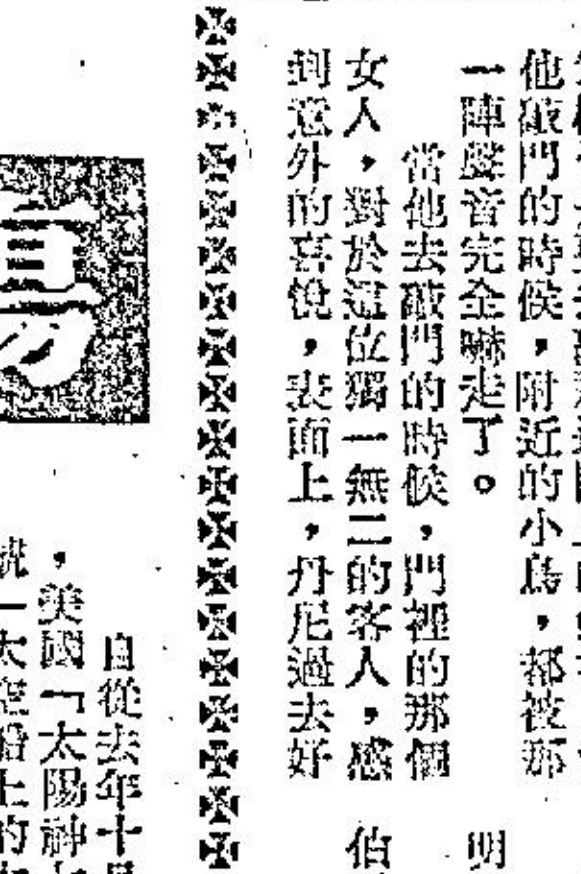 他敲門的時候，附近的小鳥，都被那
一陣聲音完全嚇走了。
當他去敲門的時候，門裡的那個
女人，對於這位獨一無二的客人，感
到意外的喜悅，表面上，丹尼過去好
明
伯
自從去年十
，美國「太陽神
太空船上的